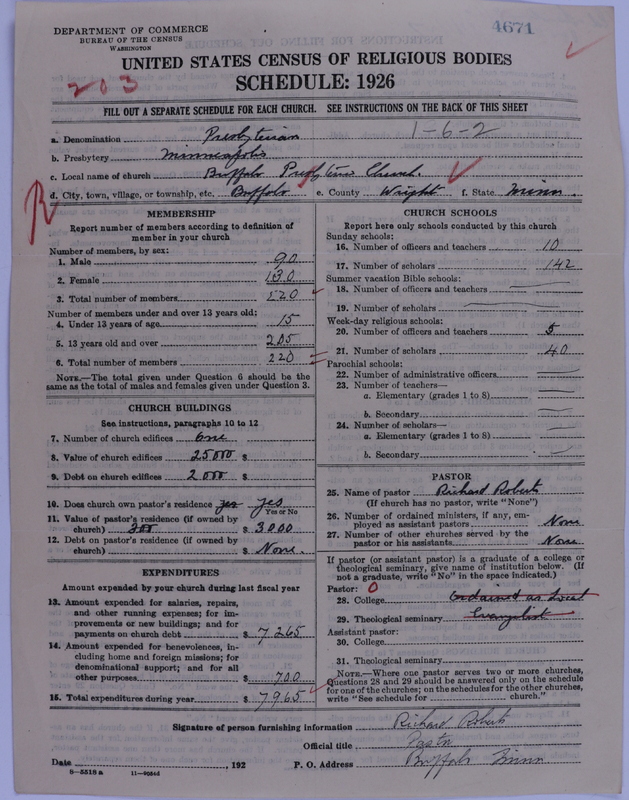 4671
DEPARTMENT OF COMMERCE
BUREAU OF THE CENSUS
WASHINGTON
UNITED STATES CENSUS OF RELIGIOUS BODIES
203
SCHEDULE: 1926
FILL OUT A SEPARATE SCHEDULE FOR EACH CHURCH. SEE INSTRUCTIONS ON THE BACK OF THIS SHEET
a. Denomination Presbyterian 1-6-2
b. Presbytery Minneapolis
c. Local name of church Buffalo Presbyterian Church.
d. City, town, village, or township, etc. Buffalo e. County Wright f. State Minn.
R
MEMBERSHIP
Report number of members according to definition of
member in your church
Number of members, by sex:
1. Male 90
2. Female 130
3. Total number of members 220
Number of members under and over 13 years old:
4. Under 13 years of age 15
5. 13 years old and over 205
6. Total number of members 220
NOTE.—The total given under Question 6 should be the
same as the total of males and females given under Question 3.
CHURCH BUILDINGS
See instructions, paragraphs 10 to 12
7. Number of church edifices One
8. Value of church edifices 25000 $
9. Debt on church edifices 2000 $
10. Does church own pastor's residence yes yes
Yes or No
11. Value of pastor's residence (if owned by
church) 300 $ 3000
12. Debt on pastor's residence (if owned by
church) $ None.
EXPENDITURES
Amount expended by your church during last fiscal year
13. Amount expended for salaries, repairs,
and other running expenses; for im-
provements or new buildings; and for
payments on church debt $ 7265
14. Amount expended for benevolences, in-
cluding home and foreign missions; for
denominational support; and for all
other purposes $ 700
15. Total expenditures during year $ 7965
CHURCH SCHOOLS
Report here only schools conducted by this church
Sunday schools:
16. Number of officers and teachers 10
17. Number of scholars 142
Summer vacation Bible schools:
18. Number of officers and teachers
19. Number of scholars
Week-day religious schools:
20. Number of officers and teachers 5
21. Number of scholars 40
Parochial schools:
22. Number of administrative officers
23. Number of teachers—
a. Elementary (grades 1 to 8)
b. Secondary
24. Number of scholars—
a. Elementary (grades 1 to 8)
b. Secondary
PASTOR
25. Name of pastor Richard Roberts
(If church has no pastor, write "None")
26. Number of ordained ministers, if any, em-
ployed as assistant pastors None
27. Number of other churches served by the
pastor or his assistants None
If pastor (or assistant pastor) is a graduate of a college or
theological seminary, give name of institution below. (If
not a graduate, write "No" in the space indicated.)
Pastor: 0
28. College Ordained as Local
29. Theological seminary Evangelist
Assistant pastor:
30. College
31. Theological seminary
NOTE.—Where one pastor serves two or more churches,
Questions 28 and 29 should be answered only on the schedule
for one of the churches; on the schedules for the other churches,
write "See schedule for church."
Signature of person furnishing information Richard Roberts
Official title Pastor
Date , 192 P. O. Address Buffalo Minn
8-5518 a